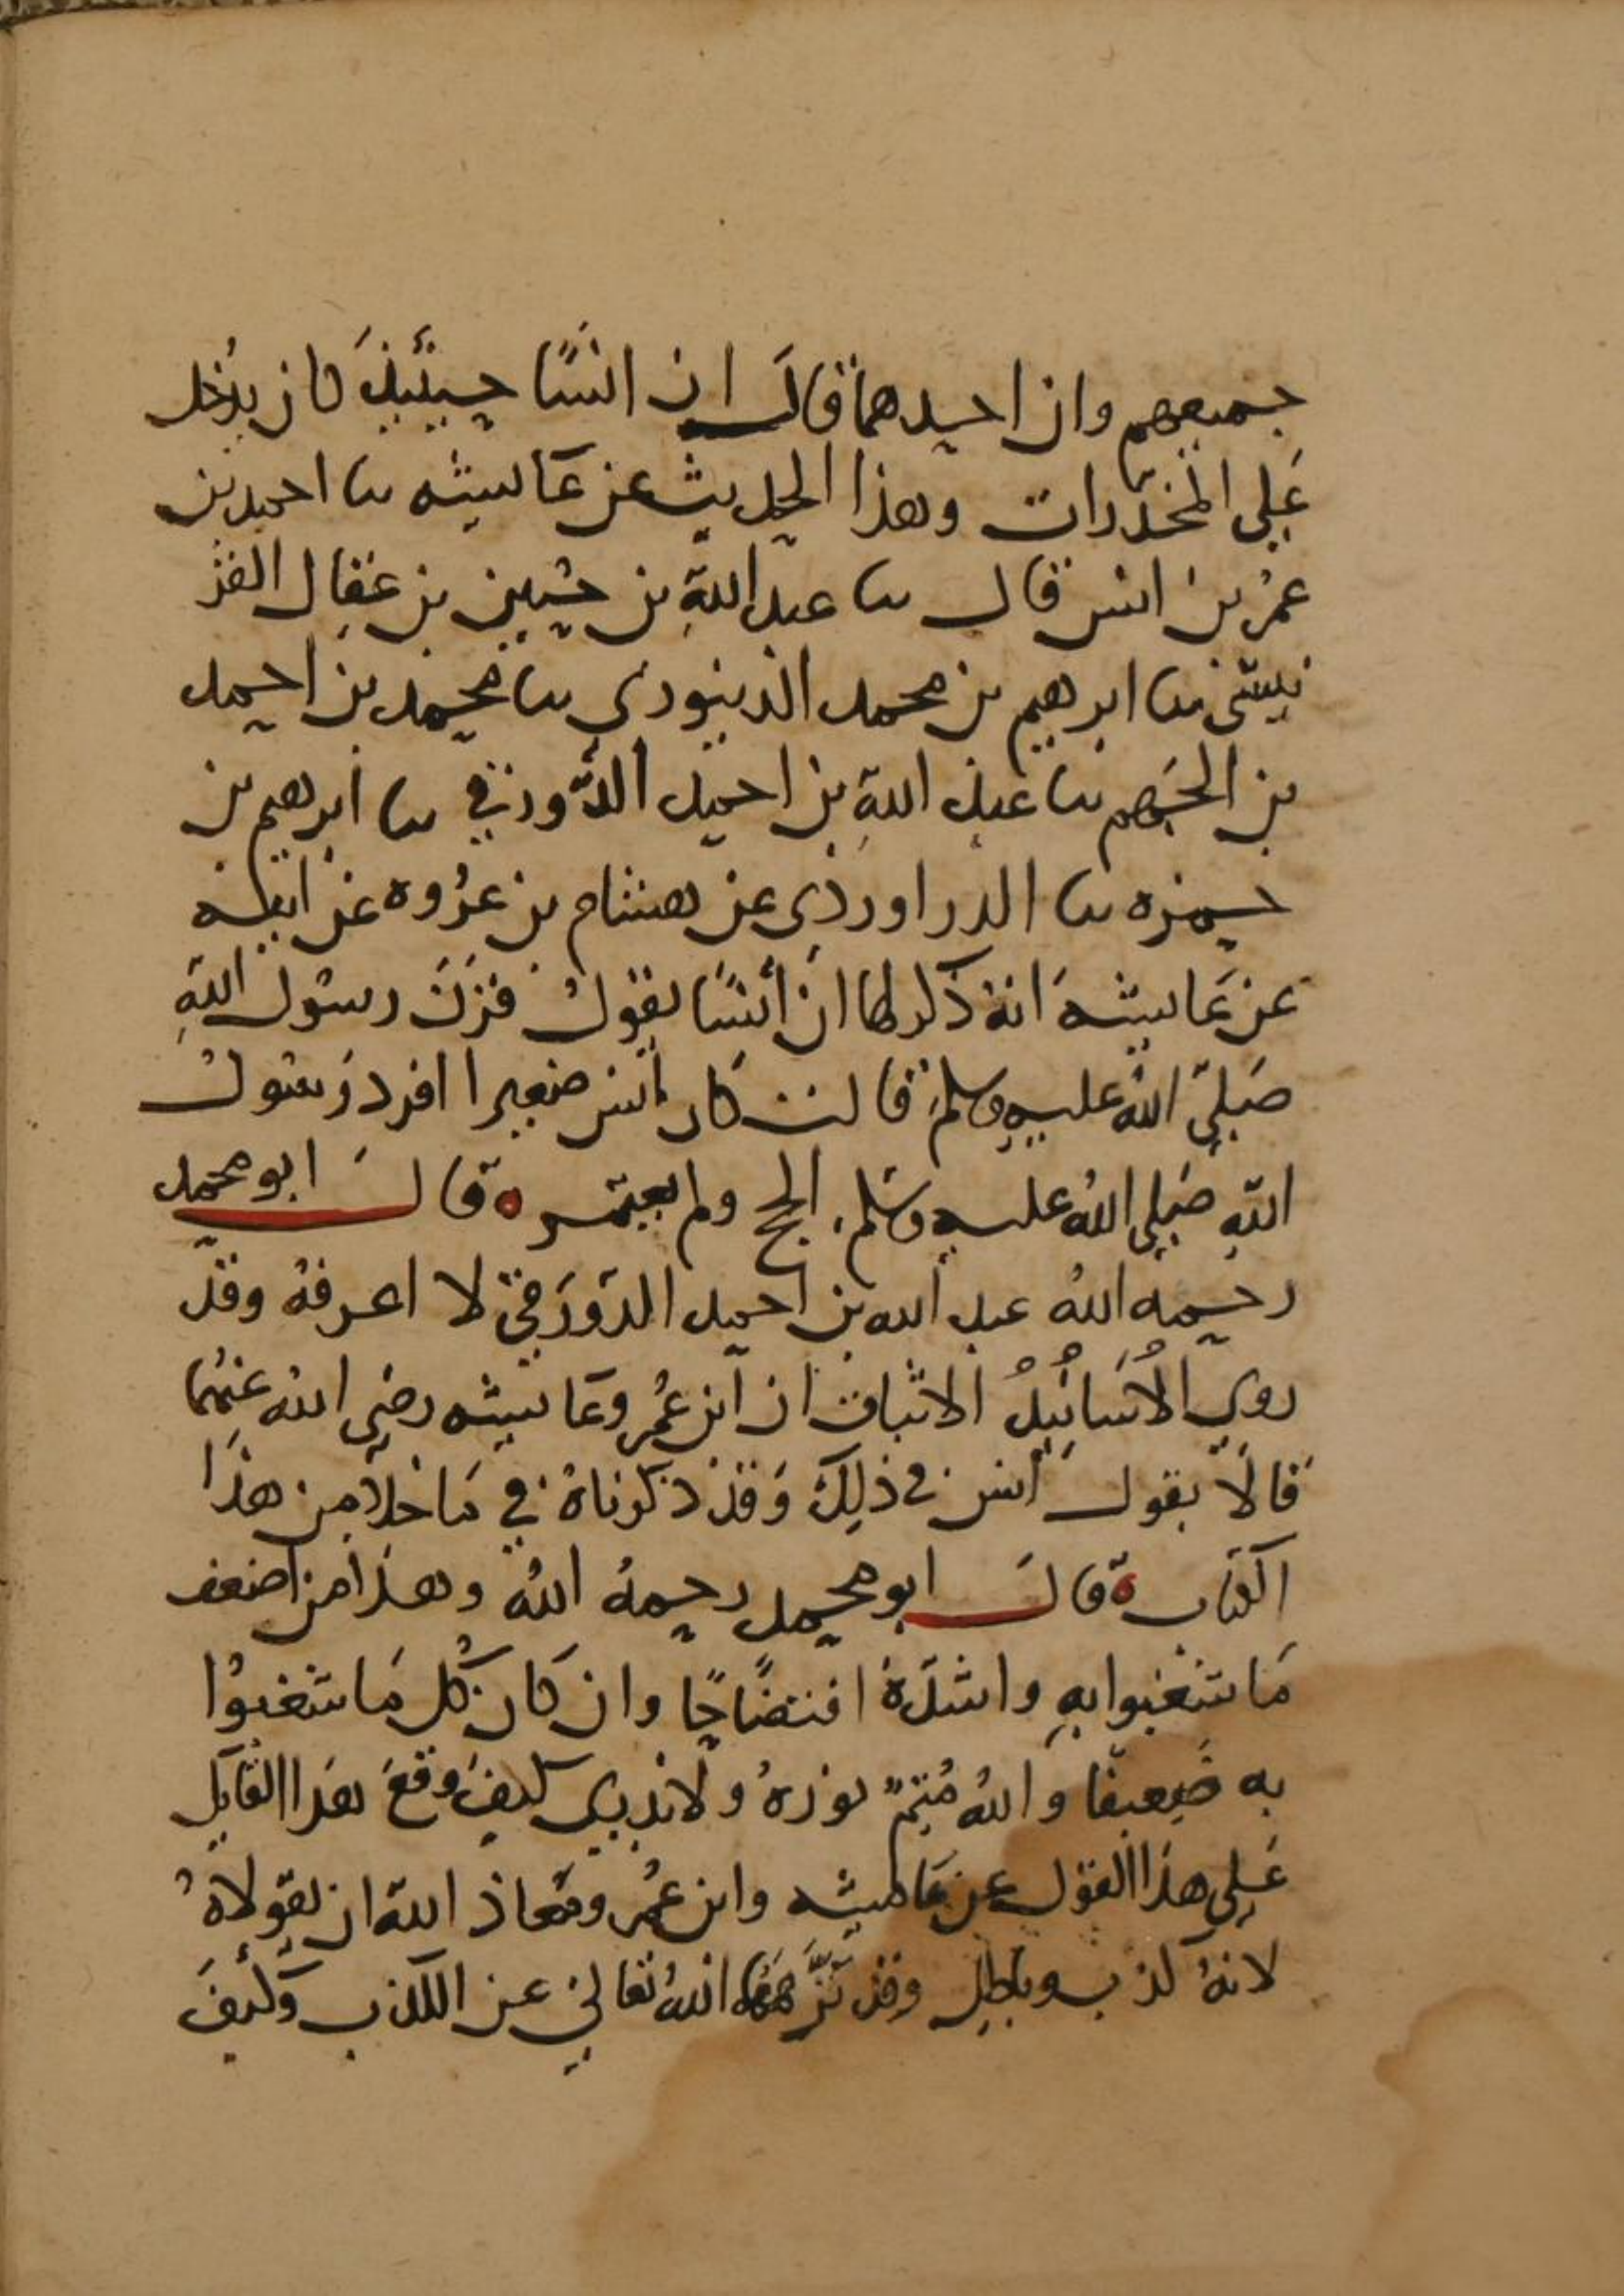 جميعهم وان احدهما قال ان انسًا حينئذ كان يدخل
على المخدّرات وهذا الحديث عن عائشه نا احمد بن
عمر بن انس قال نا عبد الله بن حسين بن عقال القر
نيشى نا ابرهيم بن محمد الدينورى نا محمد بن احمد
بن الجهم نا عبد الله بن احمد الدَّورقي نا ابرهيم بن
حمزه نا الدراوردى عن هشام بن عُروه عن ابيه
عن عَائشهَ انهُ ذكر لها ان أنسًا يقول قرن رسول اللهِ
صَلى الله عليه وسلم قالت كان انس صغيرا افرد رَسُول
اللهِ صَلى اللهُ عليه وسَلم الحج ولم يعتمر ه قال ابو محمد
رحمه اللهُ عبد الله بن احمد الدَّورَقي لا اعرفهُ وقد
روى الأسانيدُ الاثبات ان ابن عُمر وعَائشه رضي الله عَنهُما
قالَا بقول انس في ذلِكَ وَقد ذكرناهُ في مَا خلا من هذَا
الكتاب ه قال ابو محمد رحمهُ اللهُ وهذا من اضعف
مَا شغبوا بهِ واشدّهُ افتضَاحًا وان كان كُل مَا شغبُوا
به ضَعيفا و اللهُ مُتِمّ نورهُ ولا ندري كيفَ وقعَ هَذا القَايِل
عَلى هذا القول عن عَائشه وابن عُمر ومعَاذ الله ان يقولاهُ
لانهُ كذب وباطِل وقد نزَّهَهُما اللهُ تعَالى عن الكذب وَكَيفَ